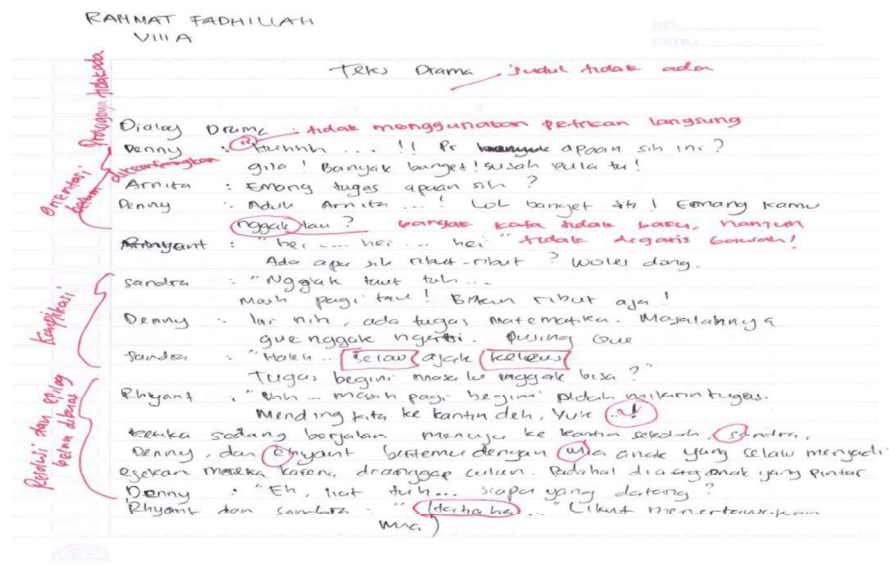 RAHMAT FADHILLAH
VIII A
Teks Drama judul tidak ada
Prolognya tidak ada
Dialog Drama : tidak menggunakan petikan langsung
Denny : "Huhhh ... !! Pr apaan sih ini ?
gila ! Banyak banget ! susah pula tu !
Orientasi, belum
Arnita : Emang tugas apaan sih ?
Denny : Aduh Arnita ... ! Lol banget sih ! Emang kamu
nggak tau ? banyak kata tidak baku, namun
Rhiyant : "hei ... hei ... hei" tidak digaris bawah!
Ada apa sih ribut-ribut ? Woles dong.
Sandra : "Nggak tau tuh ...
Masih pagi tau ! Bikin ribut aja !
Komplikasi
Denny : Ini nih, ada tugas Matematika. Masalahnya
gue nggak ngerti. Pusing Gue
Sandra : "Haleh .. selaw ajak keleus
Tugas begini masa lo nggak bisa ?"
Resolusi dan epilog
Rhyant : "Uhh ... masih pagi begini mikirin tugas.
Mending kita ke kantin deh, Yuk ...!
Ketika sedang berjalan menuju ke kantin sekolah, sandra,
Denny, dan rhiyant bertemu dengan mia anak yang selalu menjadi
ejekan mereka karena dianggap culun. Padahal dia anak yang pintar
Denny : "Eh, liat tuh... siapa yang datang ?
Rhyant dan Sandra : "Hahaha ..." (ikut menertawakan
mia)